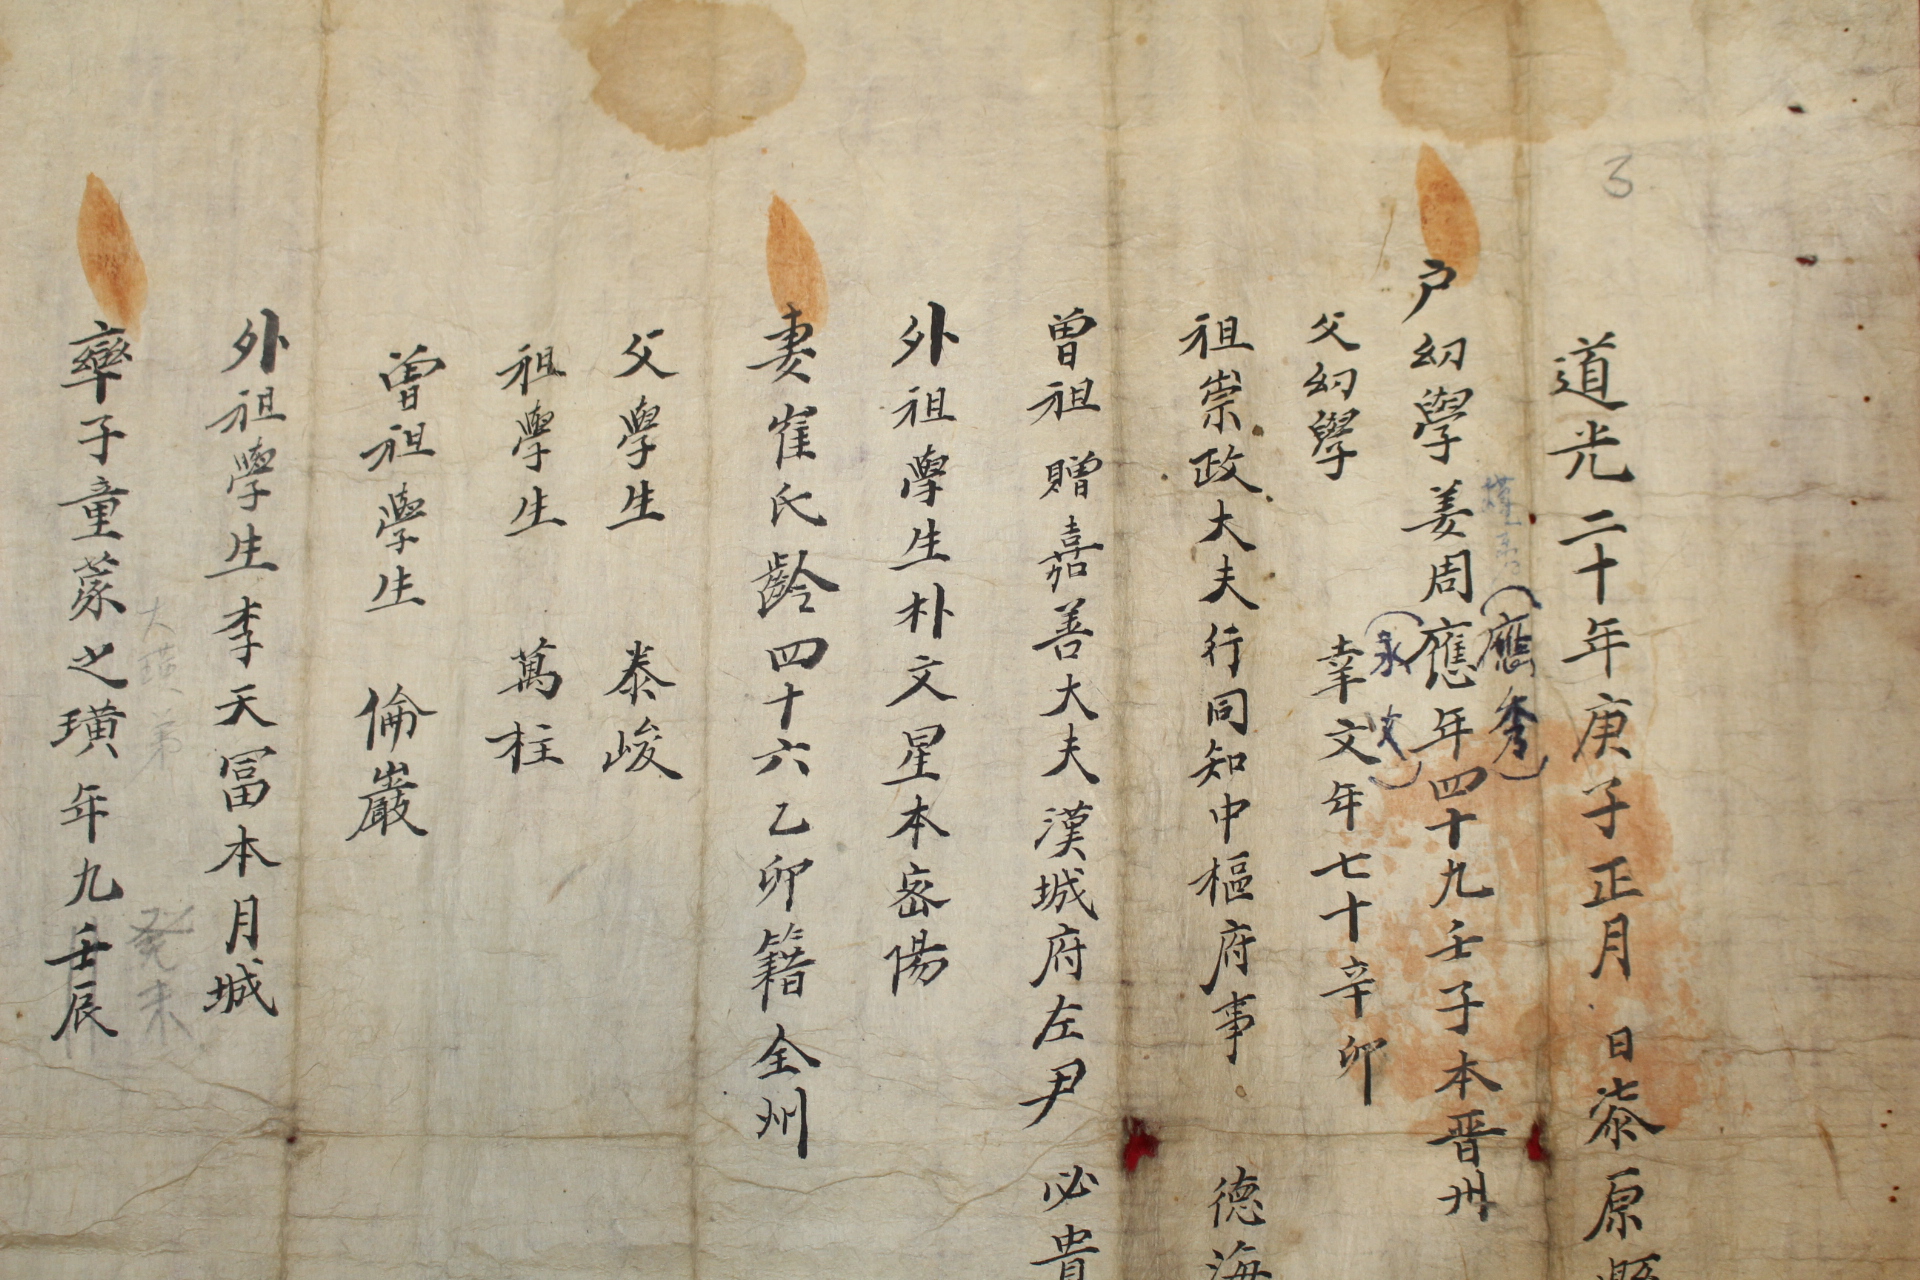 3
道光二十年庚子正月 日漆原縣
應秀
戶幼學姜周應年四十九壬子本晋州
永文
父幼學 幸文年七十辛卯
祖崇政大夫行同知中樞府事 德海
曾祖贈嘉善大夫漢城府左尹 必貴
外祖學生朴文星本密陽
妻崔氏齡四十六乙卯籍全州
父學生 泰峻
祖學生 萬柱
曾祖學生 倫巖
外祖學生李天冨本月城
大璜弟 癸未
率子童蒙之璜年九壬辰